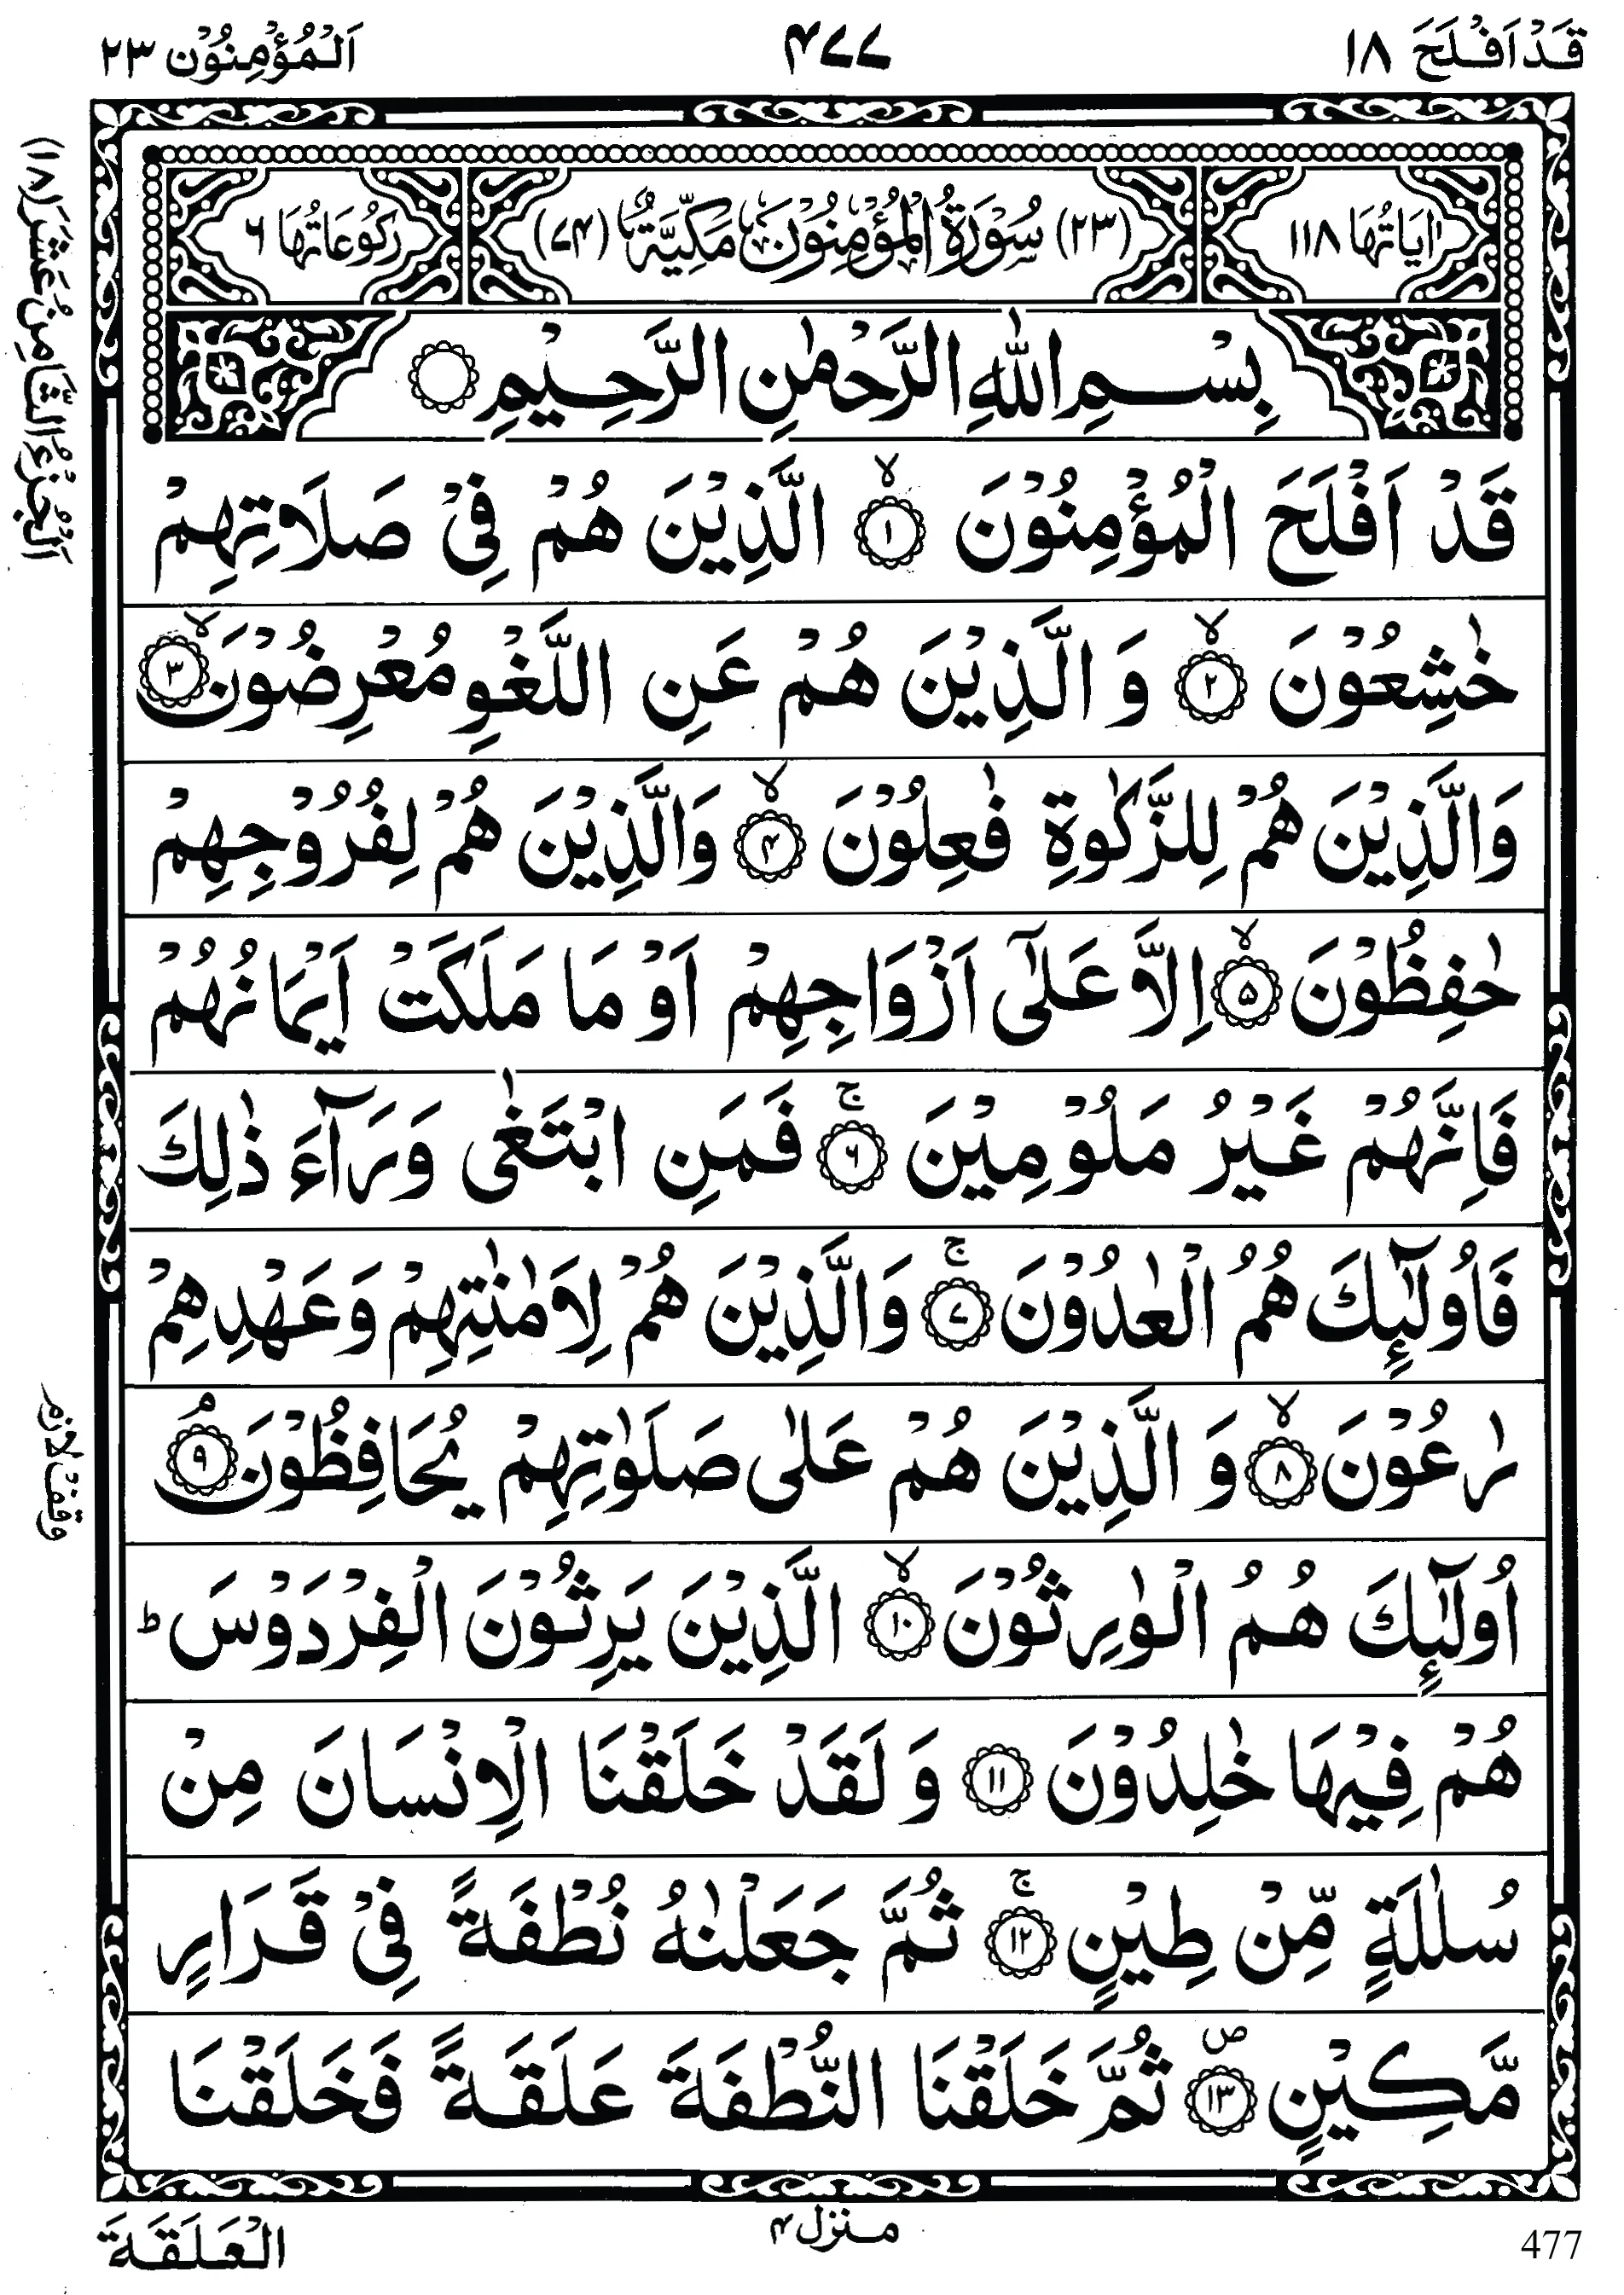 قَدْ اَفْلَحَ ١٨
٤٧٧
اَلْمُؤْمِنُوْن ٢٣
اٰيَاتُهَا ١١٨
(٢٣) سُوْرَةُ الْمُؤْمِنُوْنَ مَكِّيَّةٌ (٧٤)
رُكُوْعَاتُهَا ٦
بِسْمِ اللّٰهِ الرَّحْمٰنِ الرَّحِيْمِ
قَدْ اَفْلَحَ الْمُؤْمِنُوْنَ ۙ‏﴿١﴾ الَّذِيْنَ هُمْ فِيْ صَلَاتِهِمْ
خٰشِعُوْنَ ۙ‏﴿٢﴾ وَ الَّذِيْنَ هُمْ عَنِ اللَّغْوِ مُعْرِضُوْنَ ۙ‏﴿٣﴾
وَالَّذِيْنَ هُمْ لِلزَّكٰوةِ فٰعِلُوْنَ ۙ‏﴿٤﴾ وَالَّذِيْنَ هُمْ لِفُرُوْجِهِمْ
حٰفِظُوْنَ ۙ‏﴿٥﴾ اِلَّا عَلٰٓى اَزْوَاجِهِمْ اَوْ مَا مَلَكَتْ اَيْمَانُهُمْ
فَاِنَّهُمْ غَيْرُ مَلُوْمِيْنَ ۚ‏﴿٦﴾ فَمَنِ ابْتَغٰى وَرَآءَ ذٰلِكَ
فَاُولٰٓئِكَ هُمُ الْعٰدُوْنَ ۚ‏﴿٧﴾ وَالَّذِيْنَ هُمْ لِاَمٰنٰتِهِمْ وَعَهْدِهِمْ
رٰعُوْنَ ۙ‏﴿٨﴾ وَ الَّذِيْنَ هُمْ عَلٰى صَلَوٰتِهِمْ يُحَافِظُوْنَ ۘ‏﴿٩﴾
اُولٰٓئِكَ هُمُ الْوٰرِثُوْنَ ۙ‏﴿١٠﴾ الَّذِيْنَ يَرِثُوْنَ الْفِرْدَوْسَ ؕ
هُمْ فِيْهَا خٰلِدُوْنَ ﴿١١﴾ وَ لَقَدْ خَلَقْنَا الْاِنْسَانَ مِنْ
سُلٰلَةٍ مِّنْ طِيْنٍ ۚ‏﴿١٢﴾ ثُمَّ جَعَلْنٰهُ نُطْفَةً فِيْ قَرَارٍ
مَّكِيْنٍ ۪‏﴿١٣﴾ ثُمَّ خَلَقْنَا النُّطْفَةَ عَلَقَةً فَخَلَقْنَا
اَلْجُزْءُ الثَّامِنُ عَشَرَ (١٨)
وقف لازم
الْعَلَقَةَ
منزل ٤
477